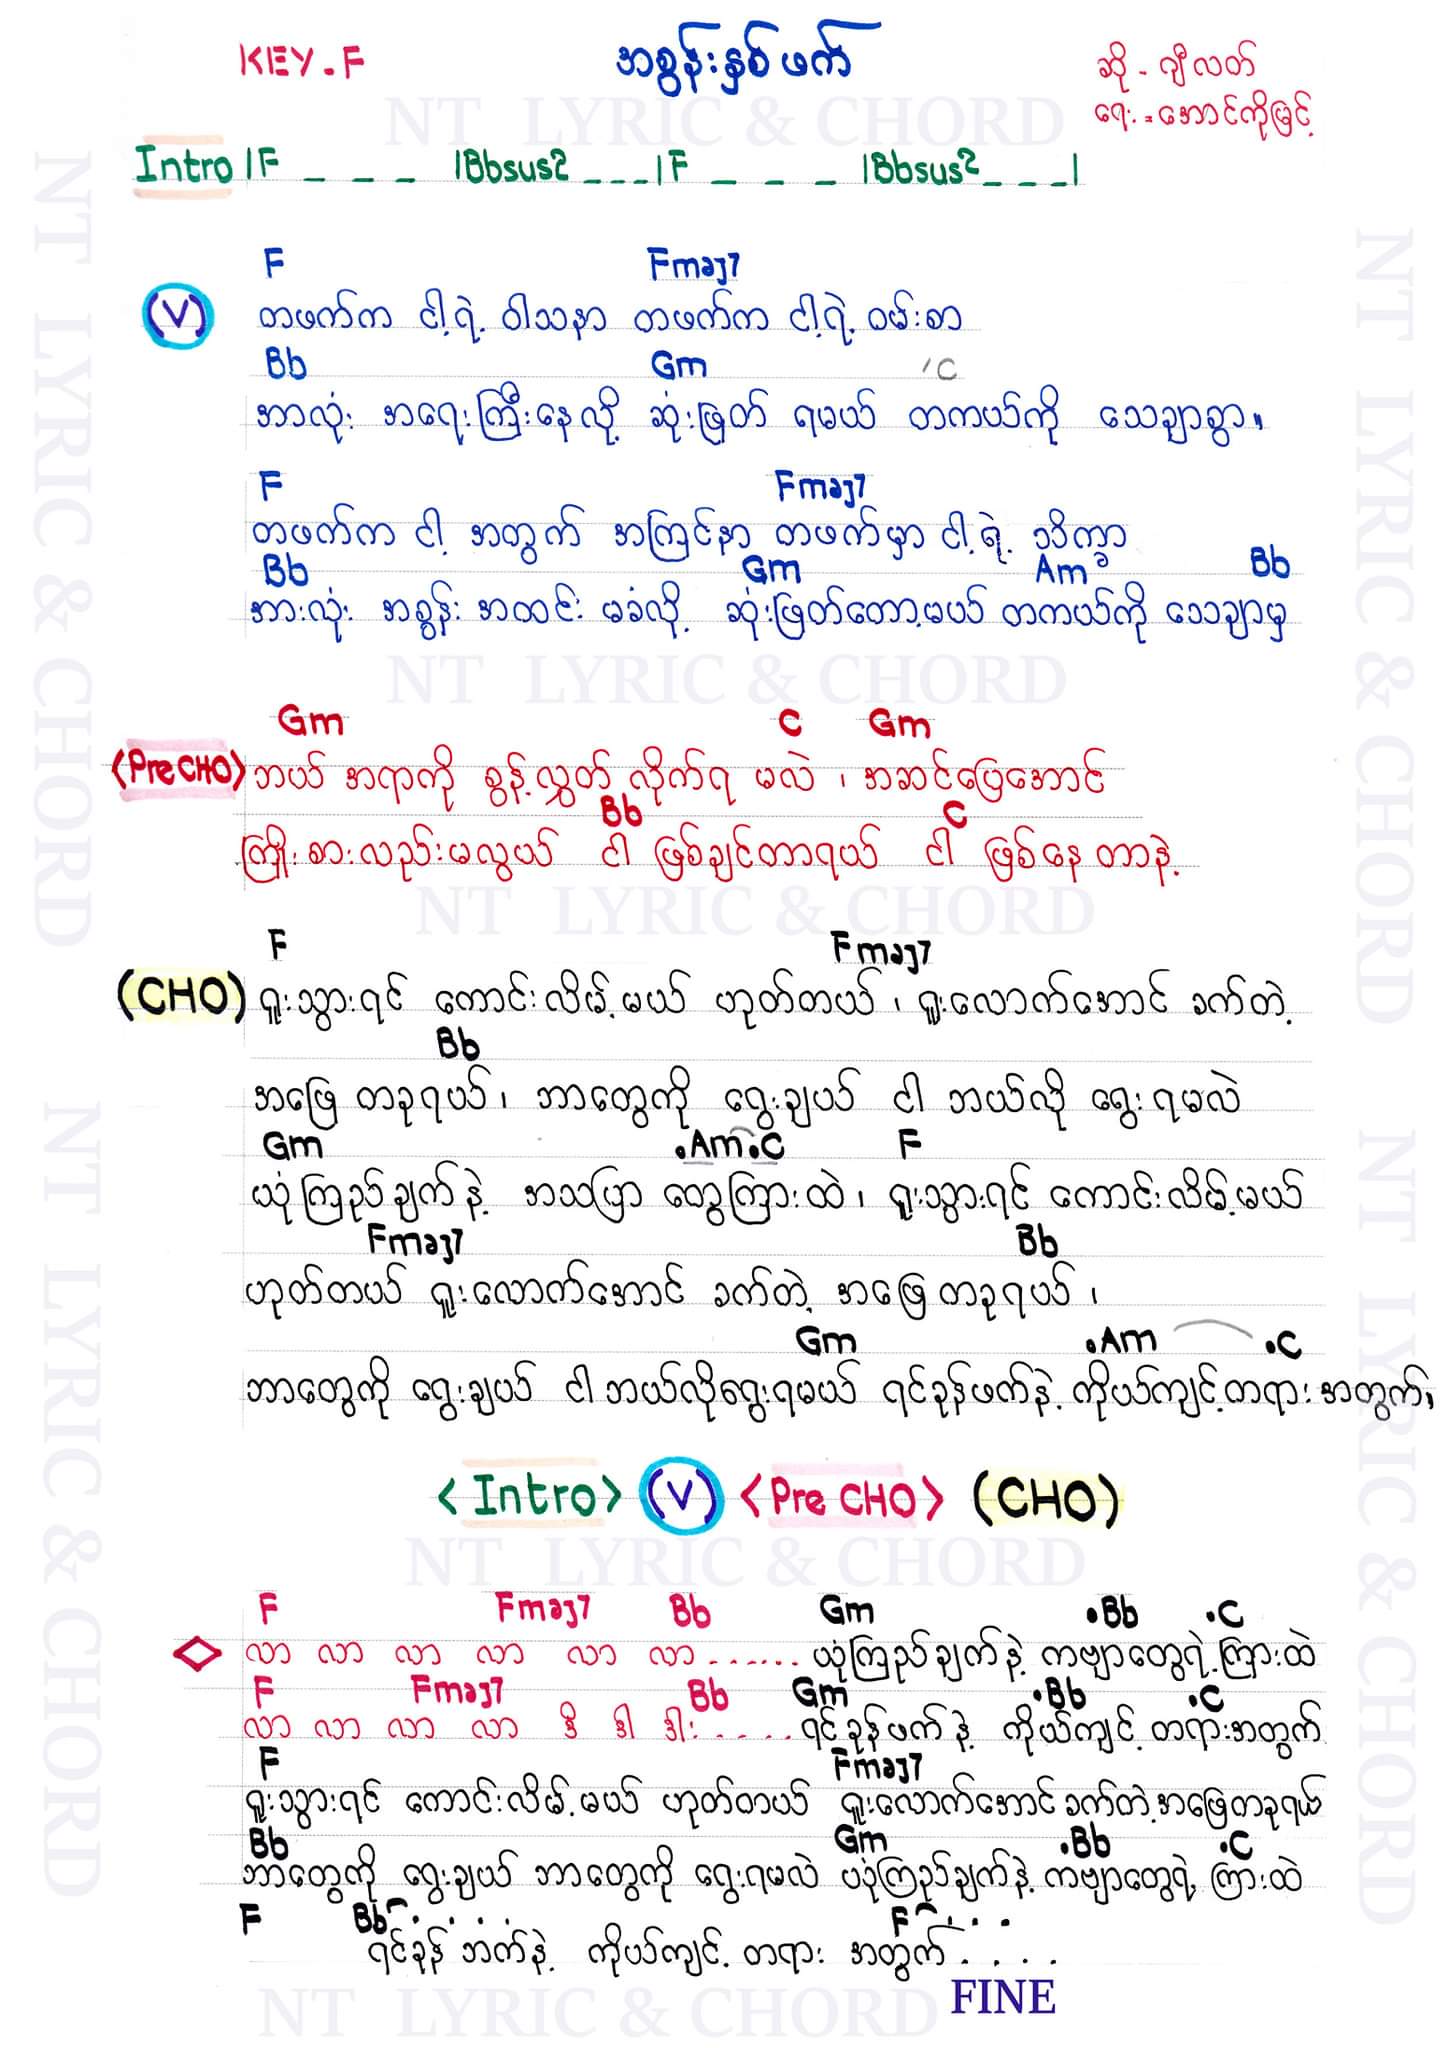 KEY.F
အစွန်းနှစ်ဖက်
ဆို - ဂျီလတ်
ရေး - အောင်ကိုမြင့်
NT LYRIC & CHORD
Intro |F _ _ _ |Bbsus2 _ _ _|F _ _ _ |Bbsus2 _ _ _|
F Fmaj7
(V) တဖက်က ငါ့ရဲ့ ဝါသနာ တဖက်က ငါ့ရဲ့ ဝမ်းစာ
Bb Gm C
အာလုံး အရေးကြီးနေလို့ ဆုံးဖြတ် ရမယ် တကယ်ကို သေချာစွာ။
F Fmaj7
တဖက်က ငါ့ အတွက် အကြင်နာ တဖက်မှာ ငါ့ရဲ့ သိက္ခာ
Bb Gm Am Bb
အားလုံး အစွန်း အထင်း မခံလို့ ဆုံးဖြတ်တော့မယ် တကယ်ကို သေချာမှ
NT LYRIC & CHORD
Gm C Gm
<Pre CHO> ဘယ် အရာကို စွန့်လွှတ် လိုက်ရ မလဲ ၊ အဆင်ပြေအောင်
Bb C
ကြိုးစားလည်းမလွယ် ငါ ဖြစ်ချင်တာရယ် ငါ ဖြစ်နေ တာနဲ့
NT LYRIC & CHORD
F Fmaj7
(CHO) ရူးသွားရင် ကောင်းလိမ့်မယ် ဟုတ်တယ် ၊ ရူးလောက်အောင် ခက်တဲ့
Bb
အဖြေ တခုရယ် ၊ ဘာတွေကို ရွေးချယ် ငါ ဘယ်လို ရွေးရမလဲ
Gm .Am .C F
ယုံကြည်ချက်နဲ့ အသပြာ တွေကြားထဲ ၊ ရူးသွားရင် ကောင်းလိမ့်မယ်
Fmaj7 Bb
ဟုတ်တယ် ရူးလောက်အောင် ခက်တဲ့ အဖြေ တခုရယ် ၊
Gm .Am .C
ဘာတွေကို ရွေးချယ် ငါ ဘယ်လိုရွေးရမယ် ရင်ခုန်ဖက်နဲ့ ကိုယ်ကျင့်တရား အတွက်၊
<Intro> (V) <Pre CHO> (CHO)
NT LYRIC & CHORD
F Fmaj7 Bb Gm .Bb .C
လာ လာ လာ လာ လာ လာ ...... ယုံကြည်ချက်နဲ့ ကဗျာတွေရဲ့ကြားထဲ
F Fmaj7 Bb Gm .Bb .C
လာ လာ လာ လာ ဒီ ဒါ ဒါး .... ရင်ခုန်ဖက်နဲ့ ကိုယ်ကျင့် တရားအတွက်
F Fmaj7
ရူးသွားရင် ကောင်းလိမ့်မယ် ဟုတ်တယ် ရူးလောက်အောင် ခက်တဲ့အဖြေတခုရယ်
Bb Gm .Bb .C
ဘာတွေကို ရွေးချယ် ဘာတွေကို ရွေးရမလဲ ယုံကြည်ချက်နဲ့ ကဗျာတွေရဲ့ ကြားထဲ
F Bb . . . . F . . .
ရင်ခုန် ဘက်နဲ့ ကိုယ်ကျင့် တရား အတွက် . . . .
FINE
NT LYRIC & CHORD
NT LYRIC & CHORD
NT LYRIC & CHORD
NT LYRIC & CHORD
NT LYRIC & CHORD